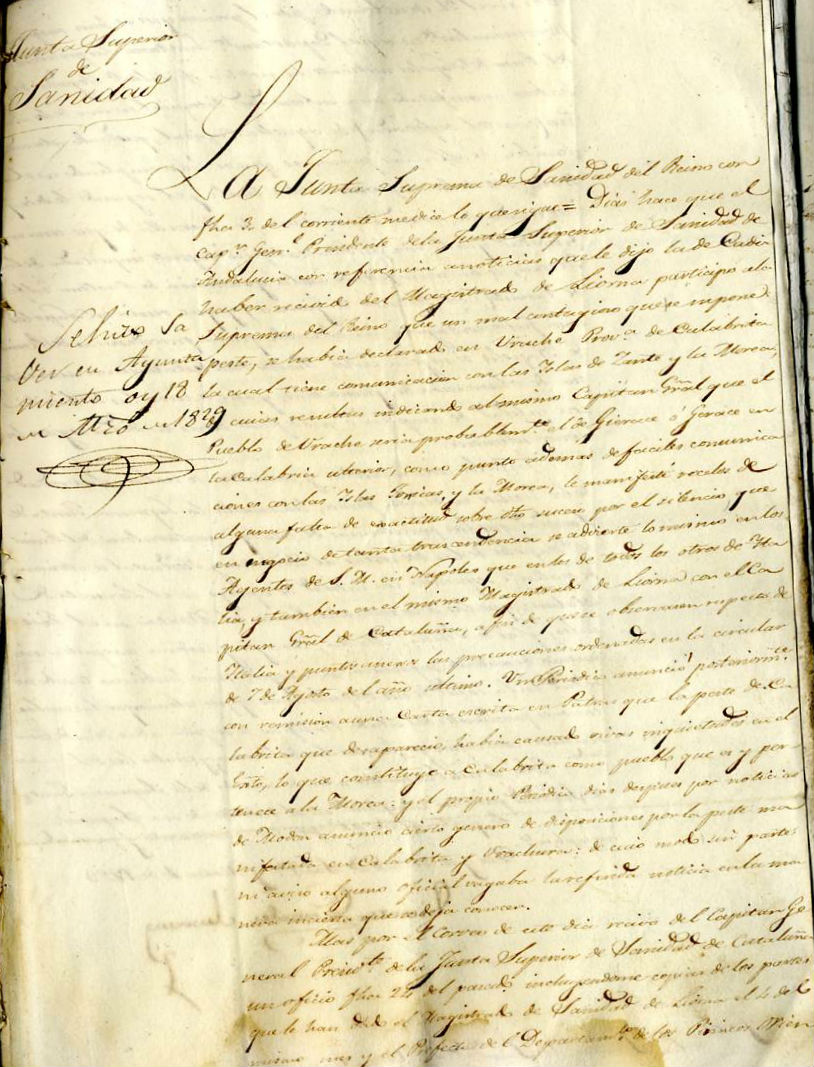 Junta Superior
de
Sanidad
La Junta Suprema de Sanidad del Reino con
fha 3 del corriente me dice lo q.e sigue = Dias hace que el
Cap.n Gen.l Presidente de la Junta Superior de Sanidad de
Andalucia con referencia a noticias que le dijo la de Cadiz
haber recivido del Magistrado de Liorna participo a la
Suprema del Reino que un mal contagioso que se supone
peste, se habia declarado en Vrache Prov.a de Calabrita
la cual tiene comunicacion con las Islas de Zante y la Morea,
a cuias resultas indicando al mismo Capitan Gral que el
Pueblo de Vrache seria probablem.te el de Gierace ó Gerace en
la Calabria ulterior, como punto ademas de faciles comunica
ciones con las Islas Jonicas, y la Morea, le manifesté recelos de
alguna falta de exactitud sobre dho suceso por el silencio que
en negocio de tanta trascendencia se advierte lo mismo en los
Agentes de S. M. en Napoles que en los de todos los otros de Ita
lia, y tambien en el mismo Magistrado de Liorna con el Ca
pitan Gral de Cataluña, a fin de que se observasen respecto de
Italia y puntos anexos las precauciones ordenadas en la circular
de 7 de Agosto del año ultimo. Un Periodico anunció posteriorm.te
con remision a una Carta escrita en Patras que la peste de Ca
labrita que desaparecio, habia causado vivas inquietudes en el
Exto, lo que constituye a Calabrita como pueblo que es y per
tenece a la Morea: y el propio Periodico dias despues por noticias
de Modon anuncio cierto genero de disposiciones por la peste ma
nifestada en Calabrita y Vrachura: de cuio modo sin parte
ni aviso alguno oficial vagaba la referida noticia en la ma
nera incierta que se deja conocer.
Mas por el Correo de este dia recivo del Capitan Ge
neral Presid.te de la Junta Superior de Sanidad de Cataluña
un oficio fha 24 del pasado incluyendome copias de los partes
que le han dado el Magistrado de Sanidad de Liorna el 4 de
mismo mes y el Prefecto del Departam.to de los Pirineos Orien
Se hizo Sa
ver en Ayunta
miento oy 18
de Mzo de 1829